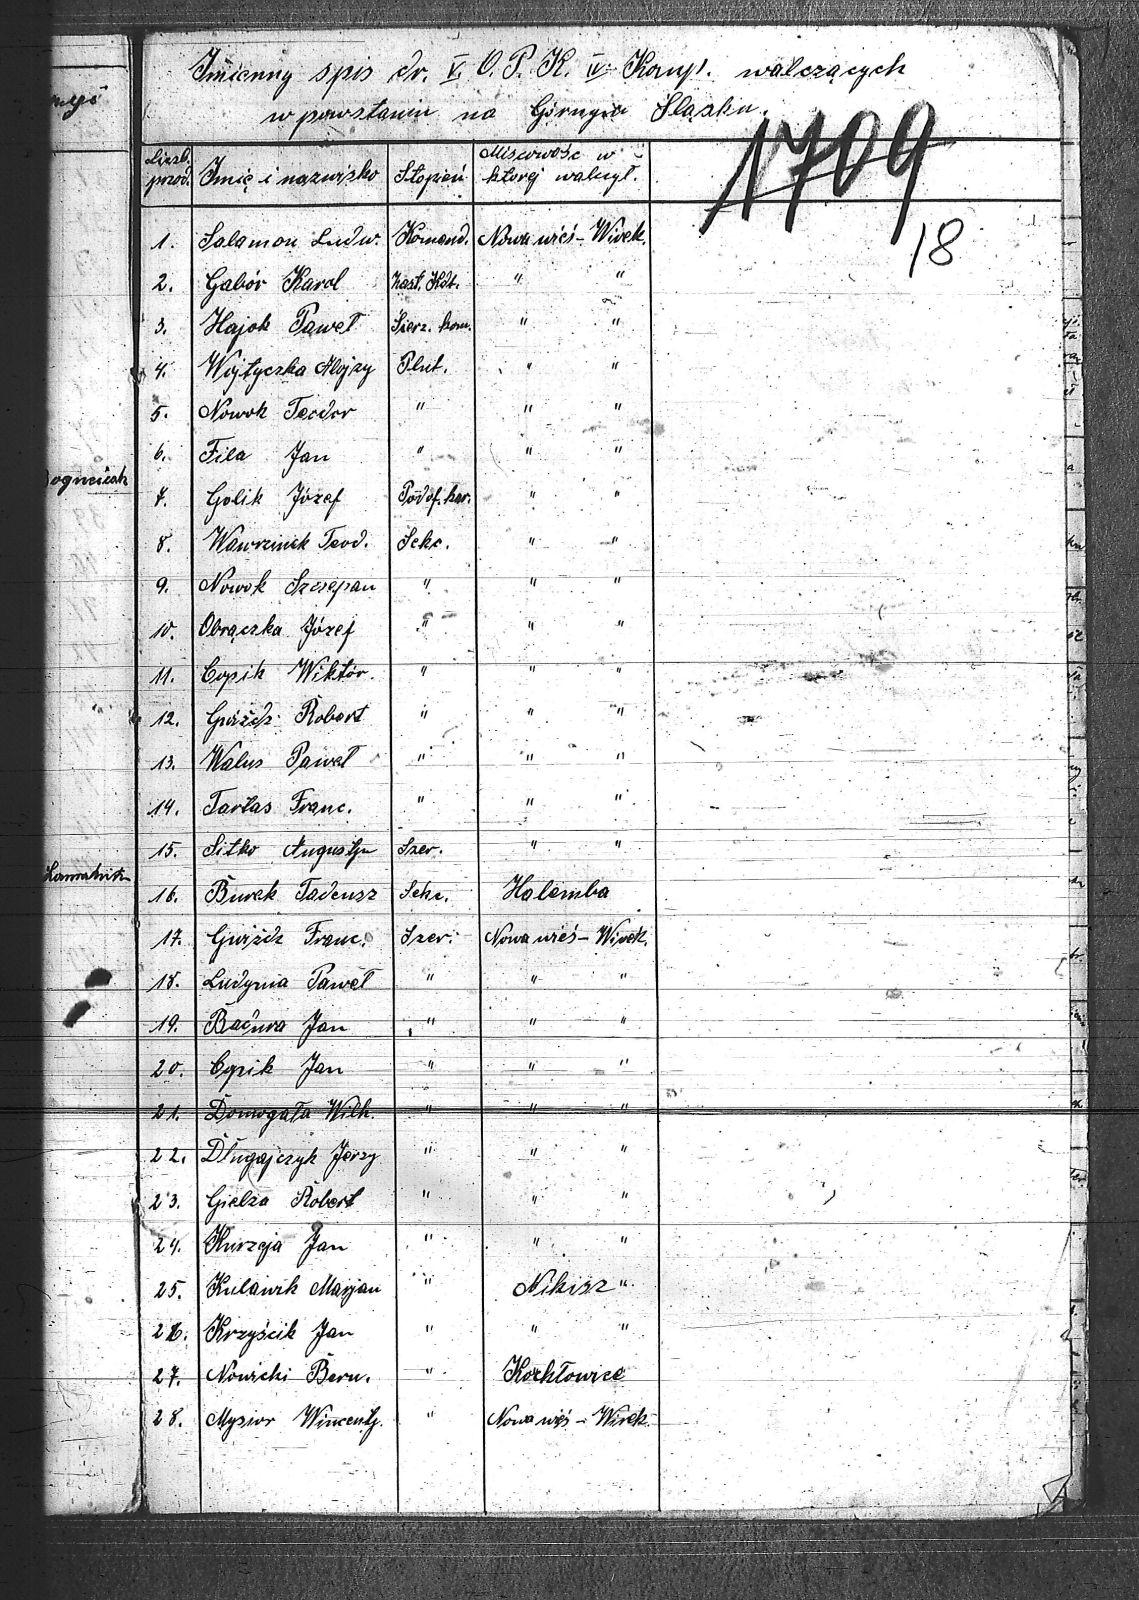 Imienny spis dr. V. O. P. K. IV Komp. walczących
w powstaniu na Górnym Śląsku.
1709
18
Liczb. porząd. Imię i nazwisko Stopień Miscowość w ktorej walczył.
1. Salamon Ludw. Komend. Nowa wieś - Wirek.
2. Gabór Karol Zast. Kdt. " "
3. Hajok Paweł Szerz. kom. " "
4. Wojtyczka Alojzy Plut. " "
5. Nowok Teodor " " "
6. Fila Jan " " "
7. Golik Józef Podof. kar. " "
8. Wawrzinek Teod. Sekc. " "
9. Nowok Szczepan " " "
10. Obrączka Józef " " "
11. Copik Wiktór. " " "
12. Gwiżdz Robert " " "
13. Walus Paweł " " "
14. Tarłas Franc. " " "
15. Sitko Augustyn Szer. " "
16. Burek Tadeusz Sekc. Halemba
17. Gwiżdz Franc. Szer. Nowa wieś - Wirek.
18. Ludynia Paweł " " "
19. Baćura Jan " " "
20. Copik Jan " " "
21. Domogała Wilh. " " "
22. Długajczyk Jerzy " " "
23. Gielza Robert " " "
24. Kurzeja Jan " " "
25. Kulawik Marjan " Nikisz "
26. Krzyścik Jan " " "
27. Nowicki Bern. " Kochłowice
28. Mysior Wincenty. " Nowa wieś - Wirek.